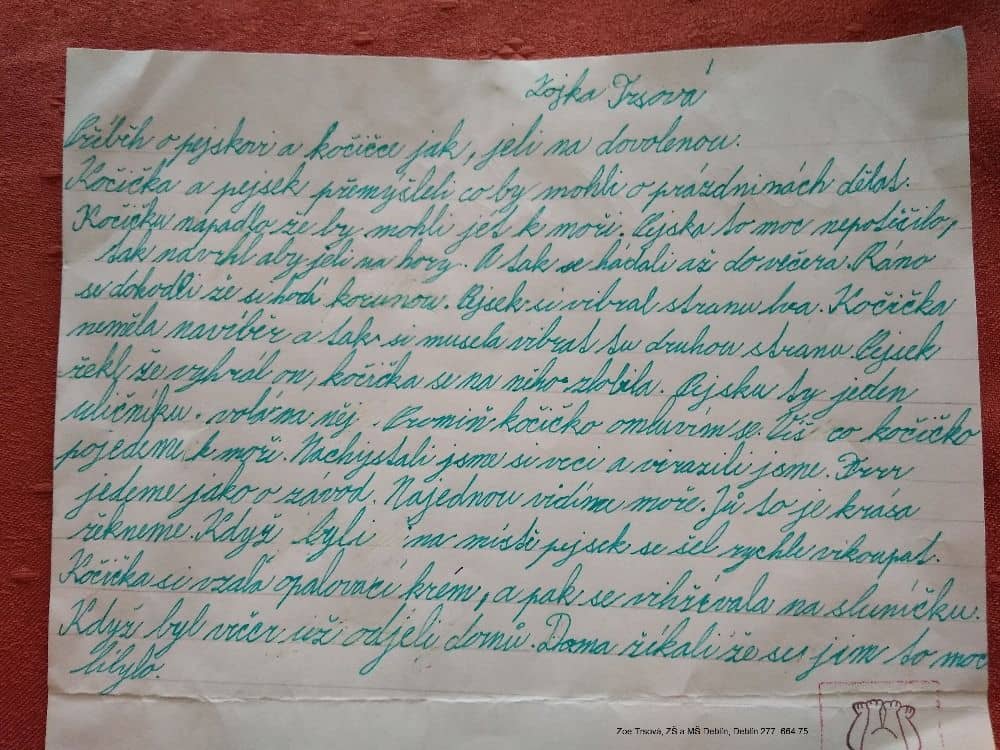 Zojka Trsová
Příběh o pejskovi a kočičce jak, jeli na dovolenou.
Kočička a pejsek přemýšleli co by mohli o prázdninách dělat.
Kočičku napadlo že by mohli jet k moři. Pejska to moc nepotěčilo,
tak navrhl aby jeli na hory. A tak se hádali až do večera. Ráno
se dohodli že si hodí korunou. Pejsek si vibral stranu lva. Kočička
neměla navíběr a tak si musela vibrat tu druhou stranu. Pejsek
řekl že vyhrál on, kočička se na něho zlobila. Pejsku ty jeden
uličníku. volázna něj. Promiň kočičko omluvím se. Víš co kočičko
pojedeme k moři. Nachystali jsme si věci a virazili jsme. Frrr
jedeme jako o závod. Najednou vidíme moře. Jů to je krása
řekneme. Když byli na místě pejsek se šel rychle vikoupat.
Kočička si vzala opalovací krém, a pak se vihřívala na sluníčku.
Když byl večer už odjeli domů. Doma říkali že se jim to moc
líbylo.
Zoe Trsová, ZŠ a MŠ Deblín, Deblín 277, 664 75